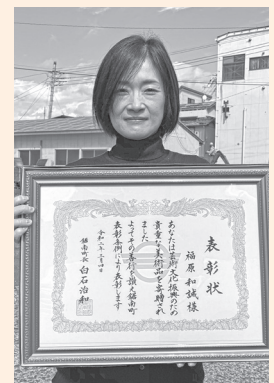 表彰状
福原和誠様
あなたは芸術文化振興のため
貴重な美術品を寄贈され
ました
よってその善行を讃え鋸南町
表彰条例により表彰します
令和二年三月四日
鋸南町長 白石治和